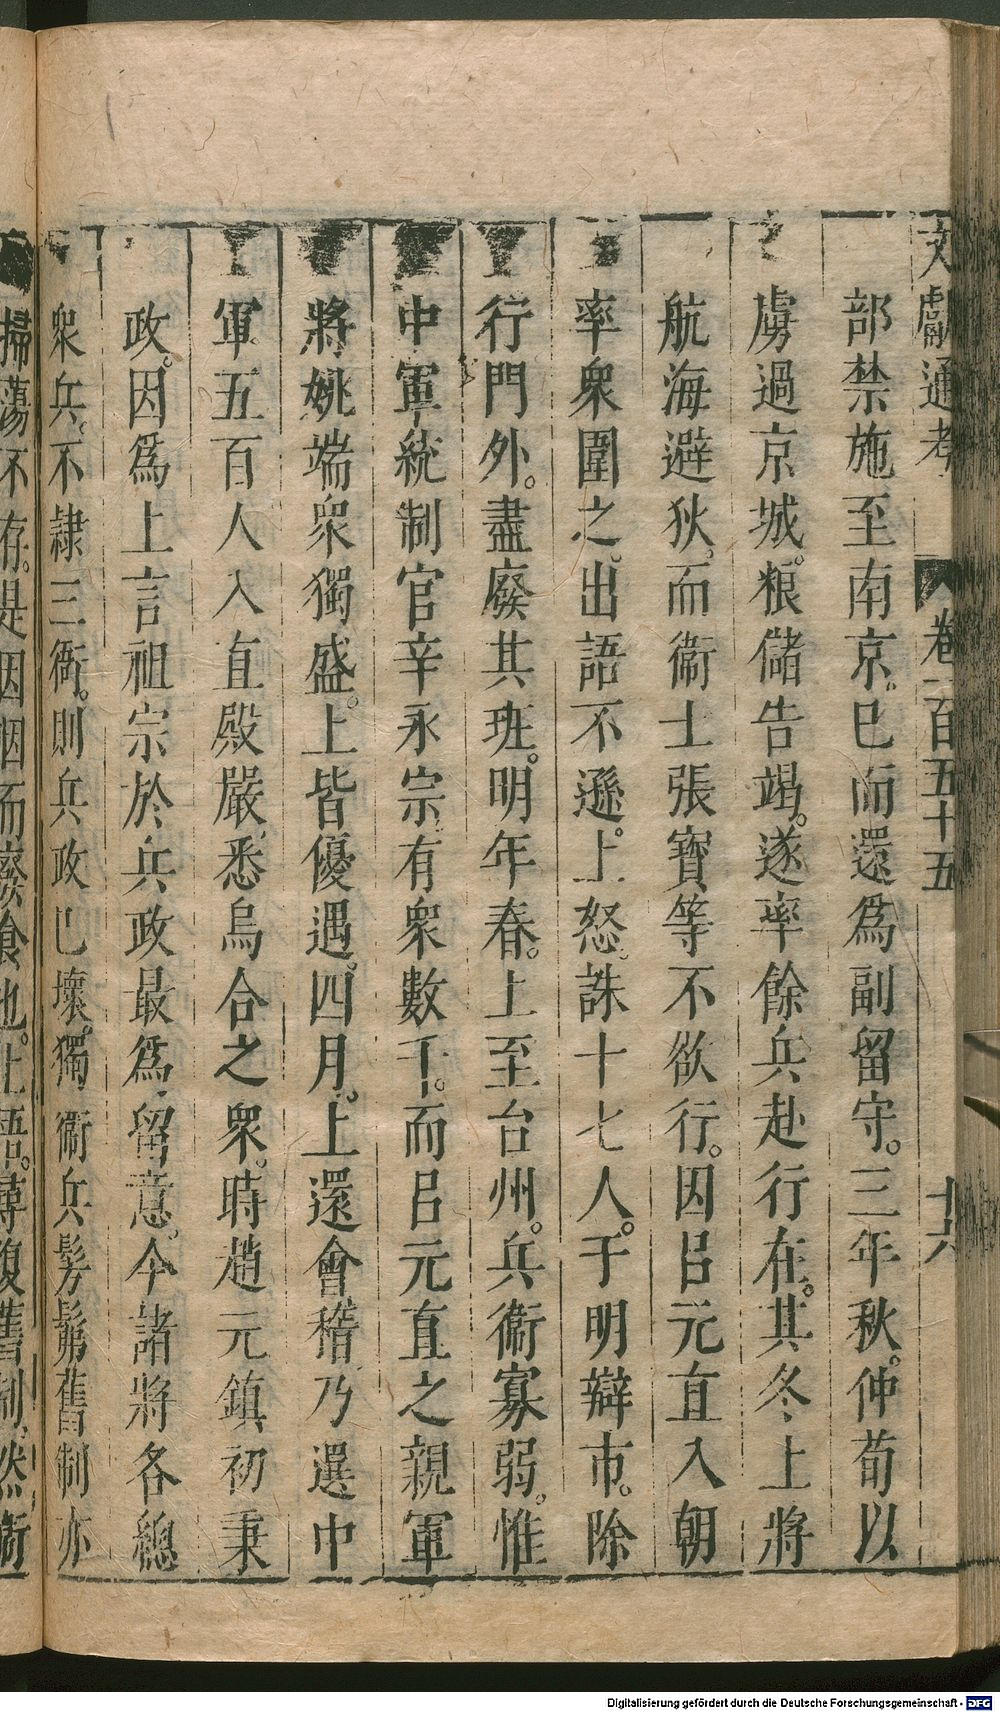 文獻通考 卷一百五十五 十六
部禁旅至南京。已而還爲副留守。三年秋。仲荀以
虜過京城。粮儲告竭。遂率餘兵赴行在。其冬上將
航海避狄。而衞士張寶等不欲行。因呂元直入朝
率衆圍之。出語不遜。上怒。誅十七人。于明辯市。除
行門外。盡廢其班。明年春。上至台州。兵衞寡弱。惟
中軍統制官辛永宗有衆數千。而呂元直之親軍
將姚端衆獨盛。上皆優遇。四月。上還會稽乃選中
軍五百人入直殿嚴。悉烏合之衆。時趙元鎮初秉
政。因爲上言祖宗於兵政最爲留意。今諸將各總
衆兵。不隷三衙。則兵政已壞。獨衞兵髣髴舊制亦
掃蕩不存。是因咽而廢食也。上悟。尋復舊制。然衞
Digitalisierung gefördert durch die Deutsche Forschungsgemeinschaft - DFG